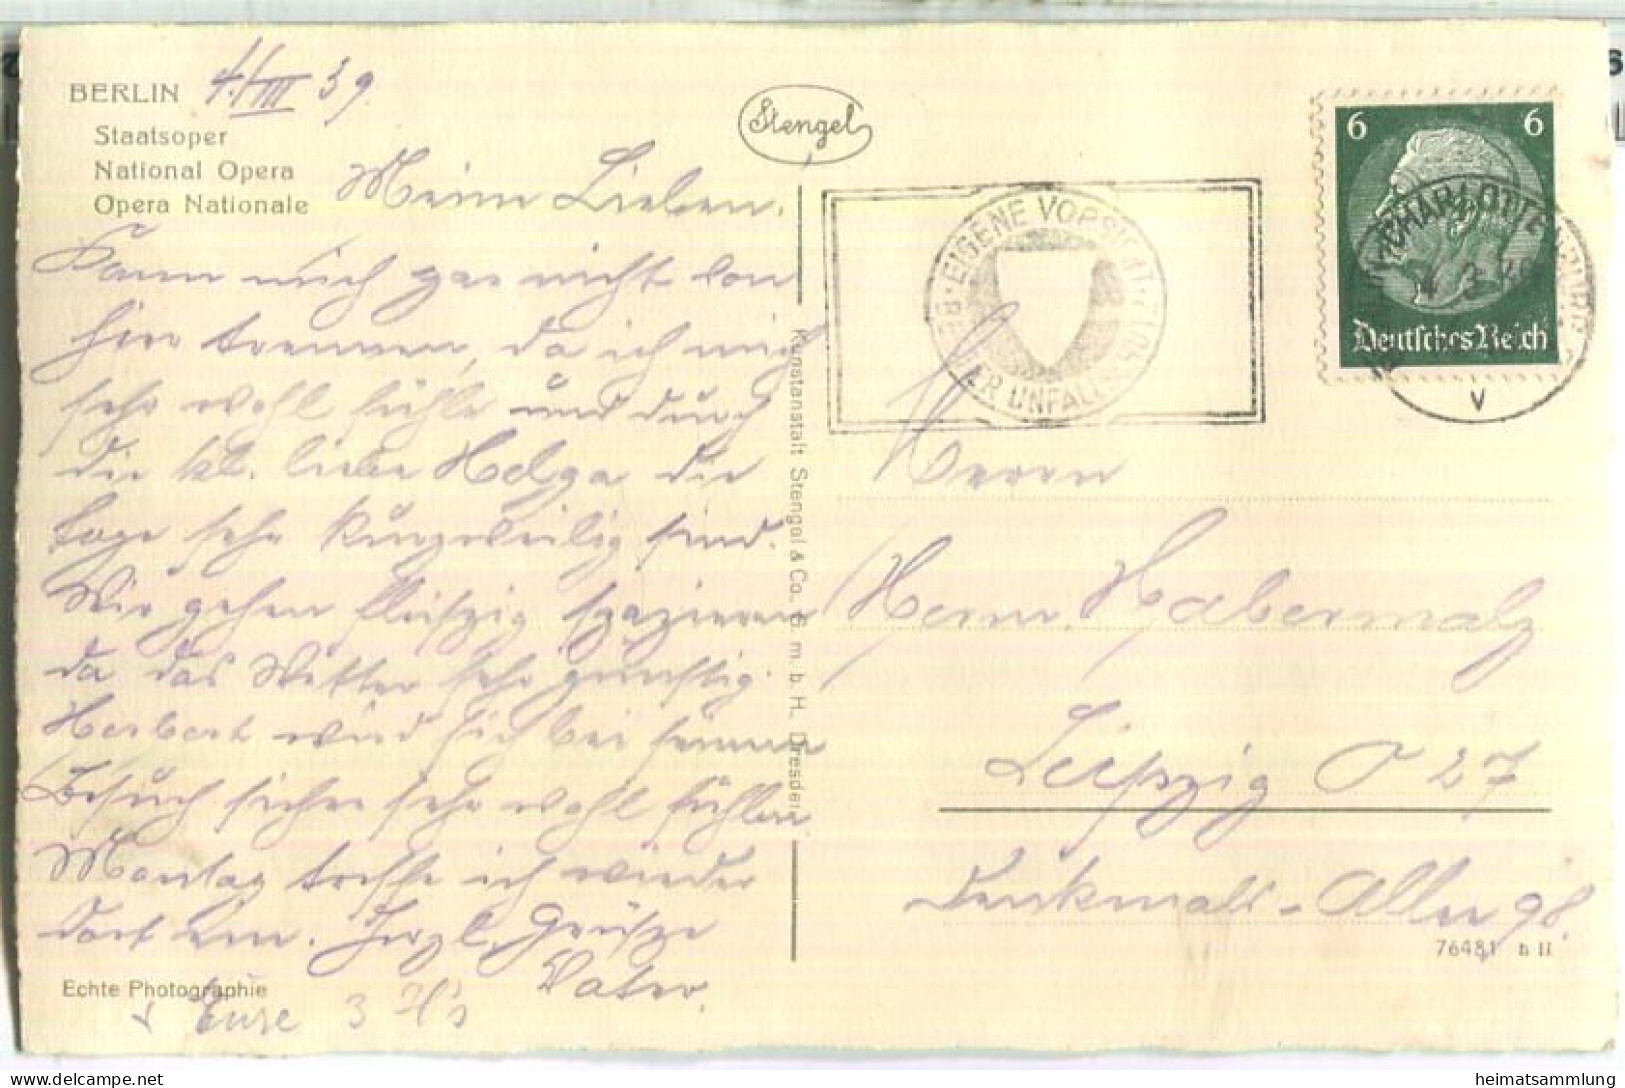 BERLIN 4./III 39.
Staatsoper
National Opera
Opera Nationale
Stengel
Meine Lieben.
Kann mich gar nicht von
hier trennen, da ich mich
sehr wohl fühle und durch
die kl. liebe Helga die
Tage sehr kurzweilig sind.
Wir gehen fleißig spazieren
da das Wetter sehr günstig.
Herbert wird sich bei seinem
Besuch sicher sehr wohl fühlen
Montag treffe ich wieder
dort ein. Herzl. Grüsze
Vater.
Echte Photographie
Eure 3 H's
Kunstanstalt Stengel & Co., G. m. b. H., Dresden
EIGENE VORSICHT
BESTER UNFALLSCHUTZ
6 6
Deutsches Reich
CHARLOTTENBURG
V
Herrn
Herm. Habermalz
Leipzig O 27
Denkmals-Allee 98.
76481 b II
heimatsammlung